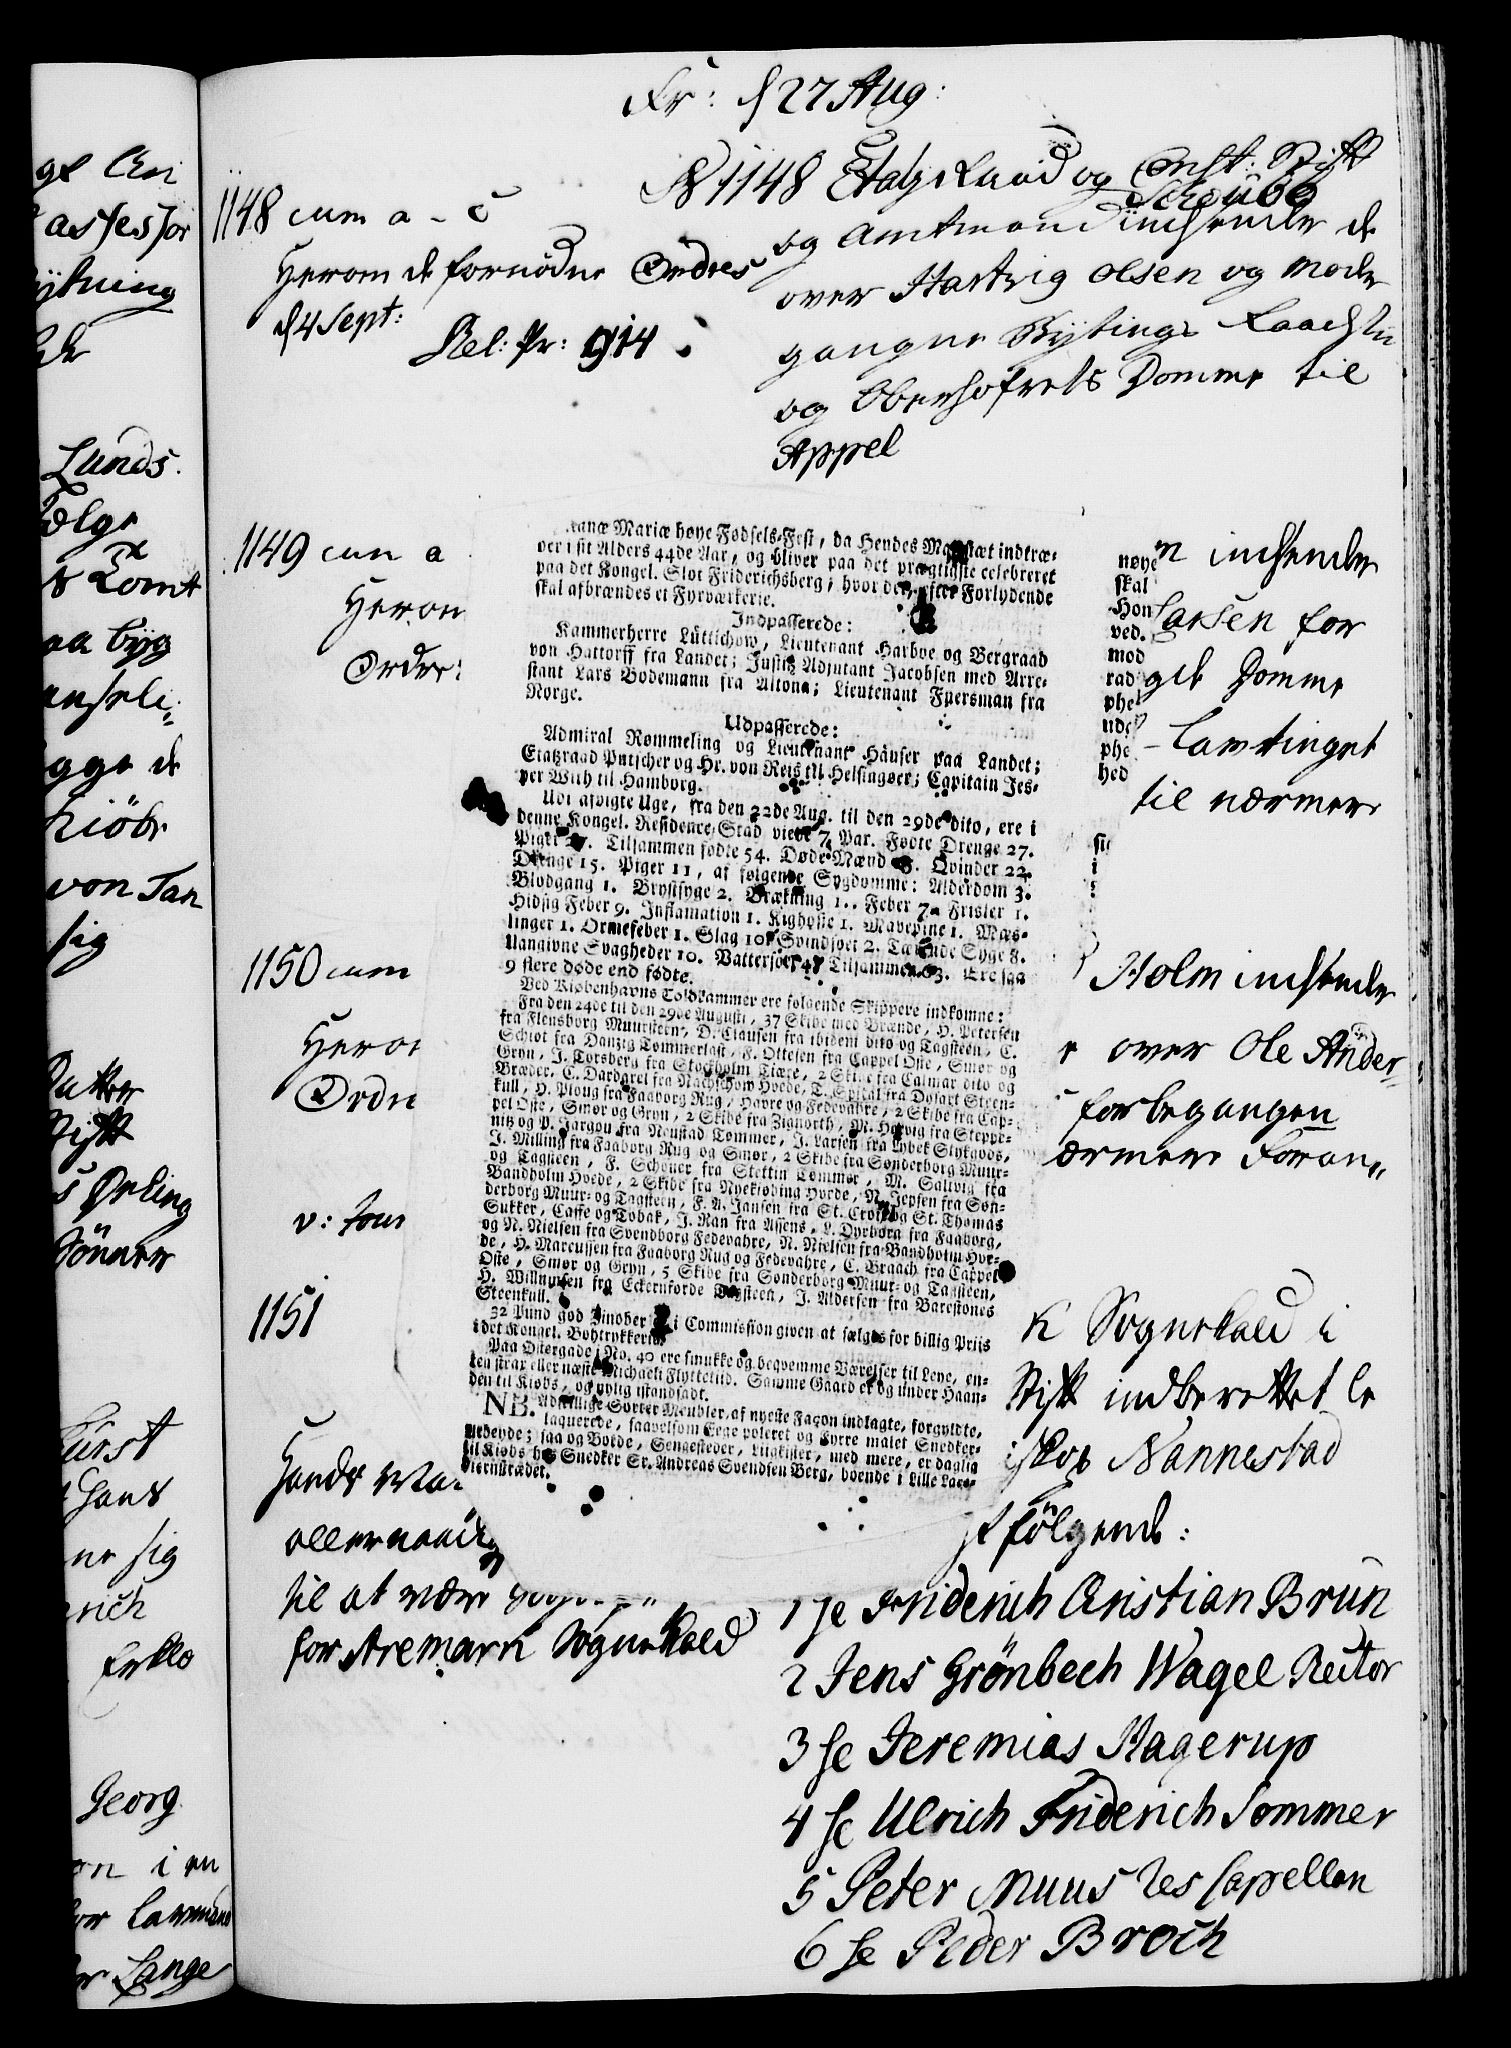 Fr: d 27 Aug:
1148 cum a - c
Herom de fornødne Ordres
d 4 Sept:
Rel: Pr: 914
No 1148 Etatz Raad og Const: Stift
og Amtmand Storm indsender de
over Hartvig Olsen og Moder
gangne Bytings
og Oberhofrets Domme til
Appel
1149 cum a
Herom
Ordre:
n indsender
Larsen for
get Domme
- Lavtinget
til nærmere
1150 cum
Herom
Ordre
v: four
Holm indsender
e over Ole Ander
forbegangen
ærmere Foran
1151
K Sognekald i
Stift indberettet le
iskop Nannestad
st følgende:
Hands Ma
allernaadig
til at være
for Aremark Sognekald
1 Se Friderich Cristian Brun
2 Jens Grönbech Wagel Rector
3 Se Jeremias Hagerup
4 Se Ulrich Friderich Sommer
5 Peter Muus Res Capellan
6 Se Peder Broch
ianæ Mariæ høye Fødsels-Fest, da Hendes Majestæt indtræ-
der i sit Alders 44de Aar, og bliver paa det prægtigste celebreret
paa det Kongel. Slot Friderichsberg; hvor der efter Forlydende
skal afbrændes et Fyrværkerie.
Indpasserede:
Kammerherre Lüttichow, Lieutenant Harboe og Bergraad
von Hattorff fra Landet; Justitz Adjutant Jacobsen med Arre-
stant Lars Bodemann fra Altona; Lieutenant Fuersman fra
Norge.
Udpasserede:
Admiral Rømmeling og Lieutenant Häuser paa Landet;
Etatzraad Putscher og Hr. von Reis til Helsingøer; Capitain Jes-
per With til Hamborg.
Udi afvigte Uge, fra den 22de Aug. til den 29de dito, ere i
denne Kongel. Residence-Stad viede 7 Par. Fødte Drenge 27.
Piger 27. Tilsammen fødte 54. Døde Mænd 8. Qvinder 22.
Drenge 15. Piger 11, af følgende Sygdomme: Alderdom 3.
Blodgang 1. Brystsyge 2. Brækning 1. Feber 7. Frisler 1.
Hidsig Feber 9. Inflamation 1. Kighoste 1. Mavepine 1. Mæs-
linger 1. Ormefeber 1. Slag 10. Svindsoet 2. Tærende Syge 8.
Uangivne Svagheder 10. Vattersoet 4. Tilsammen 63. Ere saa
9 flere døde end fødte.
Ved Kiøbenhavns Toldkammer ere følgende Skippere indkomne:
Fra den 24de til den 29de Augusti, 37 Skibe med Brænde, H. Petersen
fra Flensborg Muursteen, D. Clausen fra ibidem dito og Tagsteen, C.
Schiot fra Danzig Tømmerlast, F. Ottesen fra Cappel Oste, Smør og
Gryn, J. Torsberg fra Stockholm Tiære, 2 Skibe fra Calmar dito og
Bræder, C. Dardarel fra Nachschow Hvede, T. Epsical fra Dysart Steen-
kull, H. Ploug fra Faaborg Rug, Havre og Fedevahre, 2 Skibe fra Cap-
pel Oste, Smør og Gryn, 2 Skibe fra Zignorth, M. Harvig fra Steppe-
nitz og P. Jargou fra Neustad Tømmer, J. Larsen fra Lybek Stykgods,
J. Milling fra Faaborg Rug og Smør, 2 Skibe fra Sønderborg Muur-
og Tagsteen, F. Scheuer fra Stettin Tømmer, M. Sallvig fra
Bandholm Hvede, 2 Skibe fra Nyekiøbing Hvede, N. Jepsen fra Søn-
derborg Muur- og Tagsteen, F. A. Jansen fra St. Croix og St. Thomas
Sukker, Caffe og Tobak, J. Ran fra Assens, L. Dyrborg fra Faaborg,
og N. Nielsen fra Svendborg Fedevahre, N. Nielsen fra Bandholm Hve-
de, H. Marcussen fra Faaborg Rug og Fedevahre, C. Braach fra Cappel
Oste, Smør og Gryn, 5 Skibe fra Sønderborg Muur- og Tagsteen,
H. Willumsen fra Eckernførde Tagsteen, J. Aldersen fra Barestones
Steenkull.
32 Pund god Zinober i Commission given at sælges for billig Priis
i det Kongel. Bogtrykkerie.
Paa Østergade No. 40 ere smukke og beqvemme Værelser til Leye, en-
ten strax eller næste Michaeli Flyttetiid. Samme Gaard er og under Haan-
den til Kiøbs, og nylig istandsadt.
NB. Adskillige Sorter Meubler af nyeste Façon indlagte, forgyldte,
laquerede, saavelsom Eege poleret og Fyrre malet Snedker-
Arbeyde; saa og Borde, Sengesteder, Liigkister, med mere, er daglig
til Kiøbs hos Snedker Sr. Andreas Svendsen Berg, boende i Lille Lars-
biørnstrædet.
nøye
skal
Hon
ved.
mod
rad
phe
ude
phe
hed
gl An
assessor
ytning
Lunds.
Følge
Tomt
aa byg
gge de
Kiöbe
von Tan
sig
Stift
s Ørling
Sönner
Hans
ne sig
rich
Georg
on i en
er Lange